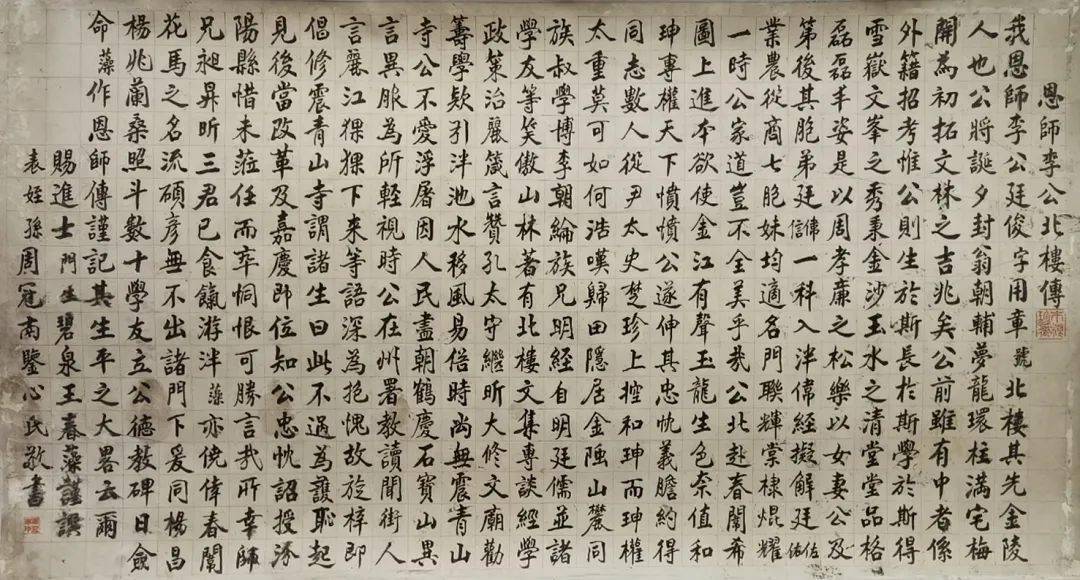 恩師李公北樓傳
我恩師李公廷俊字用章號北樓其先金陵
人也公將誕夕封翁朝輔夢龍環柱滿宅梅
開為初拓文林之吉兆矣公前雖有中者係
外籍招考惟公則生於斯長於斯學於斯得
雪嶽文峯之秀秉金沙玉水之清堂堂品格
磊磊丰姿是以周孝廉之松樂以女妻公及
第後其胞弟廷信一科入泮偉經擬解廷佐佑
業農從商七胞妹均適名門聯輝棠棣焜耀
一時公家道豈不全美乎哉公北赴春闈希
圖上進本欲使金江有聲玉龍生色奈值和
珅專權天下憤憤公遂伸其忠忱義膽約得
同志數人從尹太史楚珍上控和珅而珅權
太重莫可如何浩嘆歸田隱居金山麓同
族叔學博李朝綸族兄明經自明廷儒並諸
學友等笑傲山林著有北樓文集專談經學
政策治麗箴言贊孔太守繼昕大修文廟勸
籌學欵引泮池水移風易俗時尚無震青山
寺公不愛浮屠因人民盡朝鶴慶石寳山異
言異服為所輕視時公在州署教讀聞街人
言麗江猓猓下来等語深為抱愧故旋梓即
倡修震青山寺謂諸生曰此不過為護恥起
見後當改革及嘉慶即位知公忠忱詔授溧
陽縣惜未蒞任而卒恫恨可勝言哉所幸師
兄昶昇昕三君已食餼游泮藻亦僥倖春闈
花馬之名流碩彥無不出諸門下爰同楊昌
楊兆蘭桑照斗數十學友立公德教碑日僉
命藻作恩師傳謹記其生平之大畧云爾
賜進士門生碧泉王春藻謹譔
表姪孫周冠南鑒心氏敬書